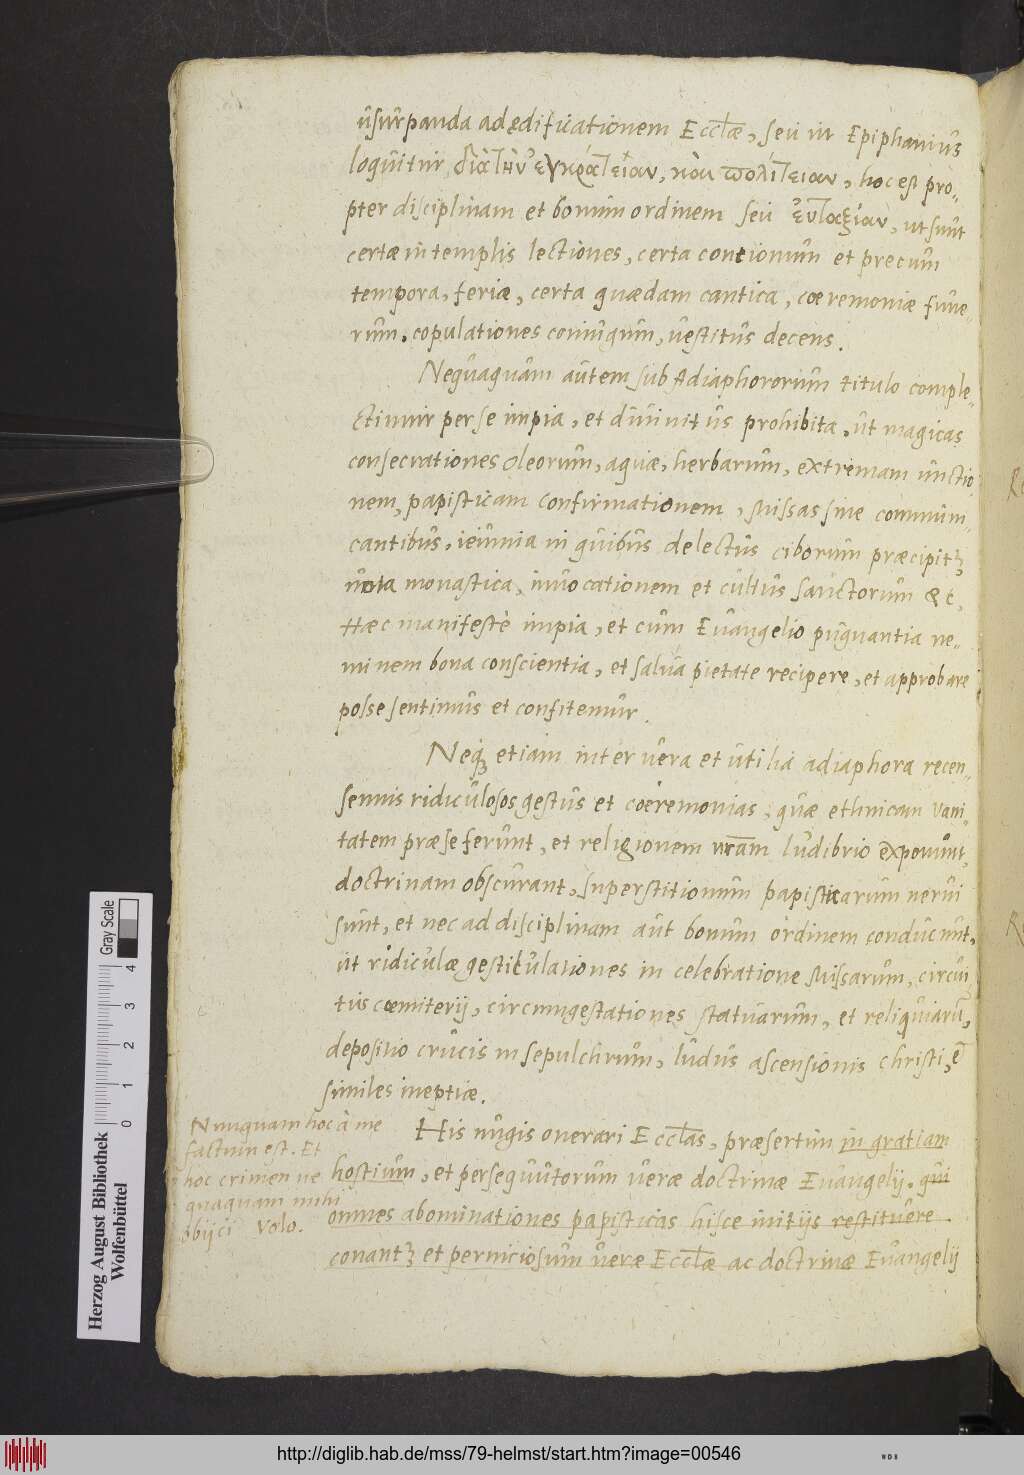 usurpanda ad ędificationem Eccłæ, seu ut Epiphanius
loquitur διὰ τὴν ἐγκράτειαν, καὶ πολίτειαν, hoc est pro-
pter disciplinam et bonum ordinem seu ἐυταξίαν, ut sunt
certæ in templis lectiones, certa concionum et precum
tempora, feriæ, certa quædam cantica, cœremoniæ fune-
rum, copulationes coniugum, uestitus decens.
Nequaquam autem sub Adiaphororum titulo comple-
ctimur per se impia, et diuinitus prohibita, ut magicas
consecrationes oleorum, aquæ, herbarum, extremam unctio-
nem, papisticam confirmationem, Missas sine communi-
cantibus, ieiunia in quibus delectus ciborum præcipitꝫ
uota monastica, inuocationem et cultus sanctorum &c,
Hæc manifestè impia, et cum Euangelio pugnantia ne-
minem bona conscientia, et salua pietate recipere, et approbare
posse sentimus et confitemur.
Neqꝫ etiam inter uera et utilia adiaphora recen-
semus ridiculosos gestus et coeremonias, quæ ethnicam vani-
tatem præ se ferunt, et religionem nr̃am ludibrio exponunt,
doctrinam obscurant, superstitionum papisticarum nerui
sunt, et nec ad disciplinam aut bonum ordinem conducunt,
ut ridiculæ gesticulationes in celebratione Missarum, circui-
tus cœmiterij, circumgestationes statuarum, et reliquiarũ,
depositio crucis in sepulchrum, ludus ascensionis christi, et
similes ineptiæ.
His nugis onerari Eccłas, præsertim in gratiam
hostium, et persequutorum ueræ doctrinæ Euangelij, qui
omnes abominationes papisticas hisce initijs restituere
conantꝫ et perniciosum ueræ Eccłæ ac doctrinæ Euangelij
Nunquam hoc à me
factum est. Et
hoc crimen ne
quaquam mihi
obijci volo.
Herzog August Bibliothek
Wolfenbüttel
Gray Scale
0 1 2 3 4
http://diglib.hab.de/mss/79-helmst/start.htm?image=00546